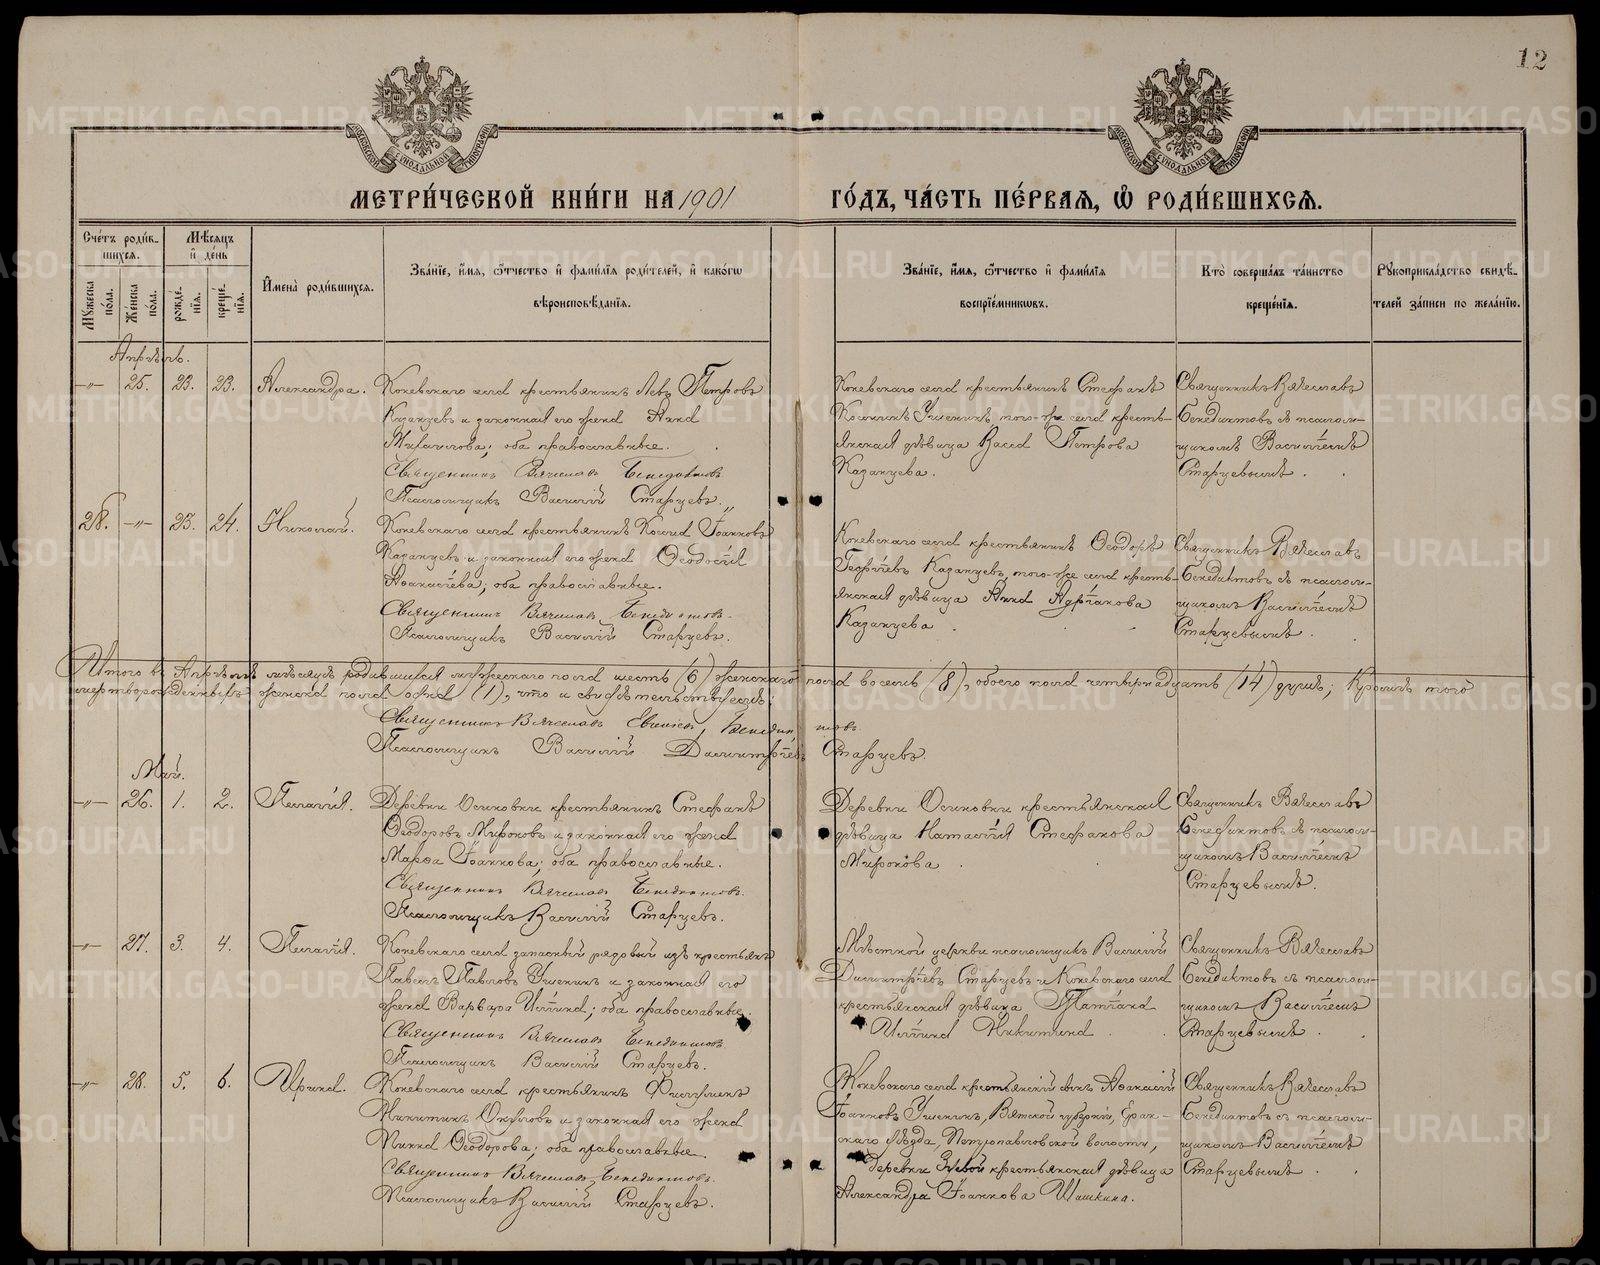 12
МОСКОВСКОЙ СѴНОДАЛЬНОЙ ТИПОГРАФІИ
МОСКОВСКОЙ СѴНОДАЛЬНОЙ ТИПОГРАФІИ
МЕТРИ́ЧЕСКОЙ КНИ́ГИ НА 1901 ГО́ДЪ, ЧА́СТЬ ПЕ́РВАЯ, Ѡ РОДИ́ВШИХСЯ.
Сче́тъ роди́в-
шихся.
Мѣ́сяцъ
и де́нь
Му́жеска
по́ла.
Же́нска
по́ла.
рожде́-
нія.
креще́-
нія.
Имена̀ роди́вшихся.
Зва́нїе, и́мя, ѻ́тчество и фами́лїя роди́телей, и како́гѡ
вѣроисповѣ́данїя.
Зва́нїе, и́мя, ѻ́тчество и фами́лїя
воспрїе́мниковъ.
Кто̀ соверша́лъ та́инство
креще́нїя.
Рукоприкла́дство свидѣ́-
телей за́писи по жела́нїю.
Апрѣль.
—„— 25. 23. 23. Александра.
Коневскаго села крестьянинъ Левъ Петровъ
Казанцевъ и законная его жена Анна
Михаилова; оба православные.
Священникъ Вячеславъ Бенедиктовъ
Псаломщикъ Василій Старцевъ.
Коневскаго села крестьянинъ Стефанъ
Ушенинъ, того-же села кресть-
янская дѣвица Васса Петрова
Казанцева.
Священникъ Вячеславъ
Бенедиктовъ съ псалом-
щикомъ Василіемъ
Старцевымъ.
28. —„— 23. 24. Николай.
Коневскаго села крестьянинъ Косма Іоанновъ
Казанцевъ и законная его жена Ѳеодосія
Аѳанасіева; оба православные.
Священникъ Вячеславъ Бенедиктовъ.
Псаломщикъ Василій Старцевъ.
Коневскаго села крестьянинъ Ѳеодоръ
Георгіевъ Казанцевъ, того-же села кресть-
янская дѣвица Анна Адріанова
Казанцева.
Священникъ Вячеславъ
Бенедиктовъ съ псалом-
щикомъ Василіемъ
Старцевымъ.
Итого въ Апрѣлѣ мѣсяцѣ родившихся мужескаго пола шесть (6) женскаго пола восемь (8), обоего пола четырнадцать (14) душъ; Кромѣ того
мертворожденныхъ женска пола одна (1), что и свидѣтельствуемъ:
Священникъ Вячеславъ Евгеніевъ Бенедиктовъ
Псаломщикъ Василій Димитріевъ Старцевъ.
Май.
—„— 26. 1. 2. Пелагія.
Деревни Осиновки крестьянинъ Стефанъ
Ѳеодоровъ Мироновъ и законная его жена
Марѳа Іоаннова; оба православные.
Священникъ Вячеславъ Бенедиктовъ.
Псаломщикъ Василій Старцевъ.
Деревни Осиновки крестьянская
дѣвица Наталія Стефанова
Миронова.
Священникъ Вячеславъ
Бенедиктовъ съ псалом-
щикомъ Василіемъ
Старцевымъ.
—„— 27. 3. 4. Пелагія.
Коневскаго села запасный рядовой изъ крестьянъ
Павелъ Павловъ Ушенинъ и законная его
жена Варвара Иліина; оба православные.
Священникъ Вячеславъ Бенедиктовъ.
Псаломщикъ Василій Старцевъ.
Мѣстной церкви псаломщикъ Василій
Димитріевъ Старцевъ и Коневскаго села
крестьянская дѣвица Татіана
Иліина Никитина.
Священникъ Вячеславъ
Бенедиктовъ съ псалом-
щикомъ Василіемъ
Старцевымъ.
—„— 28. 5. 6. Ирина.
Коневскаго села крестьянинъ Филиппъ
Никитинъ Окуловъ и законная его жена
Анна Ѳеодорова; оба православные.
Священникъ Вячеславъ Бенедиктовъ.
Псаломщикъ Василій Старцевъ.
Коневскаго села крестьянскій сынъ Аѳанасій
Іоанновъ Ушенинъ, Вятской губерніи, Еран-
скаго уѣзда, Петропавловской волости,
деревни крестьянская дѣвица
Александра Іоаннова Шашкина.
Священникъ Вячеславъ
Бенедиктовъ съ псалом-
щикомъ Василіемъ
Старцевымъ.
METRIKI.GASO-URAL.RU